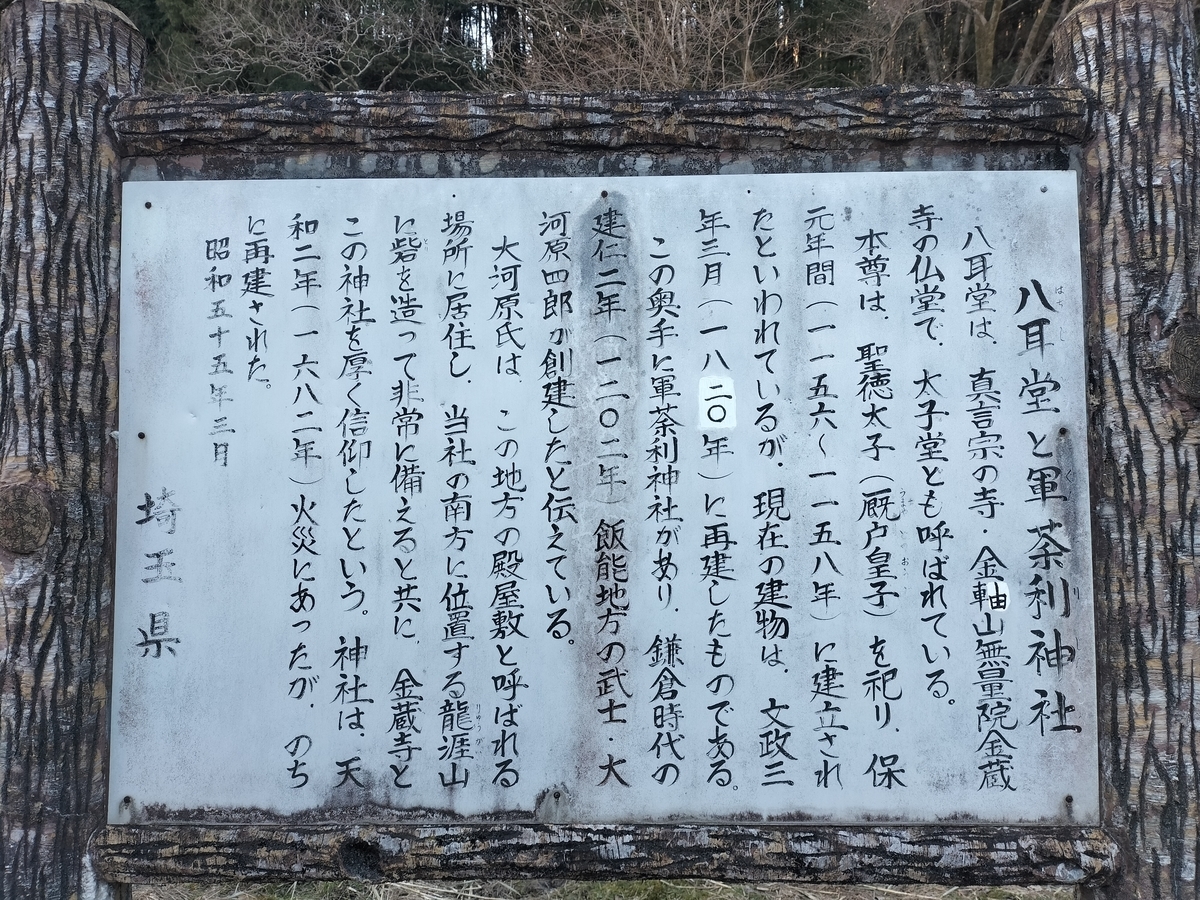 八耳堂と軍荼利神社
八耳堂は、真言宗の寺・金軸山無量院金蔵
寺の仏堂で、太子堂とも呼ばれている。
本尊は、聖徳太子（厩戸皇子）を祀り、保
元年間（一一五六〜一一五八年）に建立され
たといわれているが、現在の建物は、文政三
年三月（一八二〇年）に再建したものである。
この奥手に軍荼利神社があり、鎌倉時代の
建仁二年（一二〇二年）飯能地方の武士・大
河原四郎が創建したと伝えている。
大河原氏は、この地方の殿屋敷と呼ばれる
場所に居住し、当社の南方に位置する龍涯山
に砦を造って非常に備えると共に、金蔵寺と
この神社を厚く信仰したという。神社は、天
和二年（一六八二年）火災にあったが、のち
に再建された。
昭和五十五年三月
埼玉県